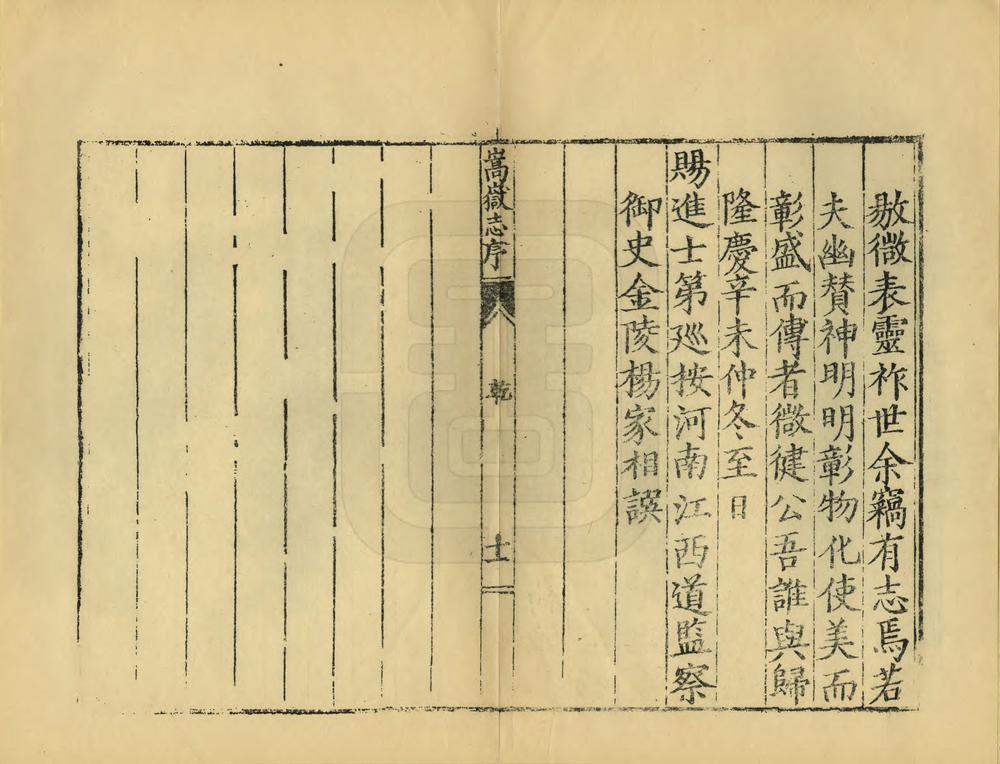 敭微表靈祚世余竊有志焉若
夫幽賛神明明彰物化使美而
彰盛而傳者微徤公吾誰與歸
隆慶辛未仲冬至日
賜進士第廵按河南江西道監察
御史金陵楊家相譔
嵩嶽志序
乾
十一